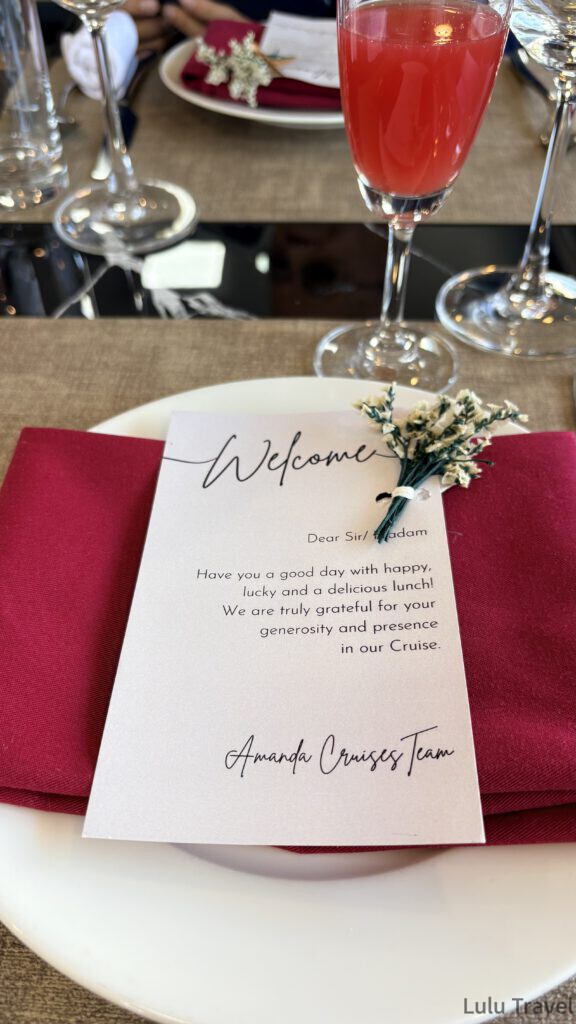 Welcome
Dear Sir/ Madam
Have you a good day with happy,
lucky and a delicious lunch!
We are truly grateful for your
generosity and presence
in our Cruise.
Amanda Cruises Team
Lulu Travel